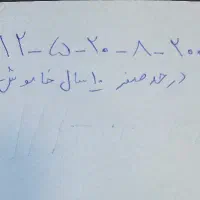 ۱۲-۵-۲۰-۸-۲۰۰
در حد صفر ۱۰ سال خاموش